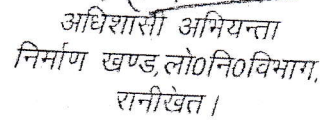 अधिशासी अभियन्ता
निर्माण खण्ड,लो0नि0विभाग,
रानीखेत।